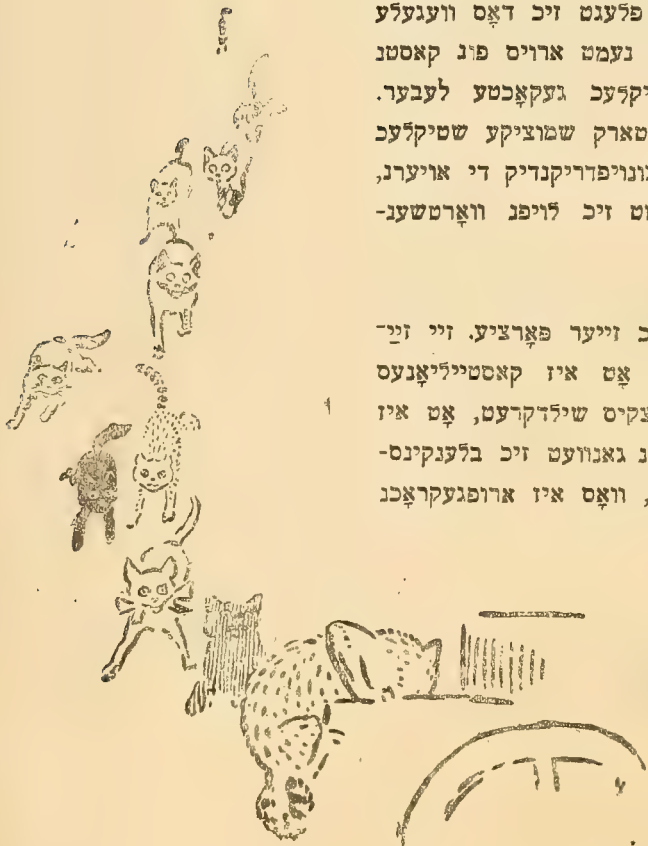 פלעגט זיכ דאָס וועגעלע
נעמט ארויס פונ קאסטנ
יקלעכ געקאָכטע לעבער.
טארק שמוציקע שטיקלעכ
ונויפדריקנדיק די אויערנ,
זיכ לויפנ וואָרטשענ־
זייער פּאָרציע. זיי זיי־
אָט איז קאסטייליאָנעס
צקיס שילדקרעט, אָט איז
גאנוועט זיכ בלענקינס־
, וואָס איז ארופגעקראָכנ